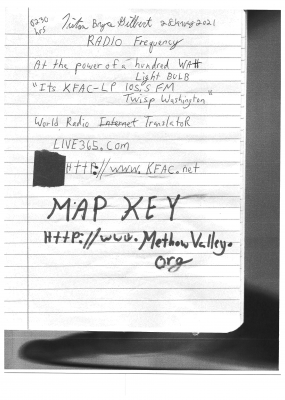 0230 hrs Bryce Gilbert 2021
RADIO Frequency
At the power of a hundred WAtt
Light BULB
"Its KFAC-LP 105.5 FM
Twisp Washington"
World Radio Internet TranslatoR
LIVE365.com
HTTP://www.KFAC.net
MAP KEY
HTTP://www.MethowValley.
org